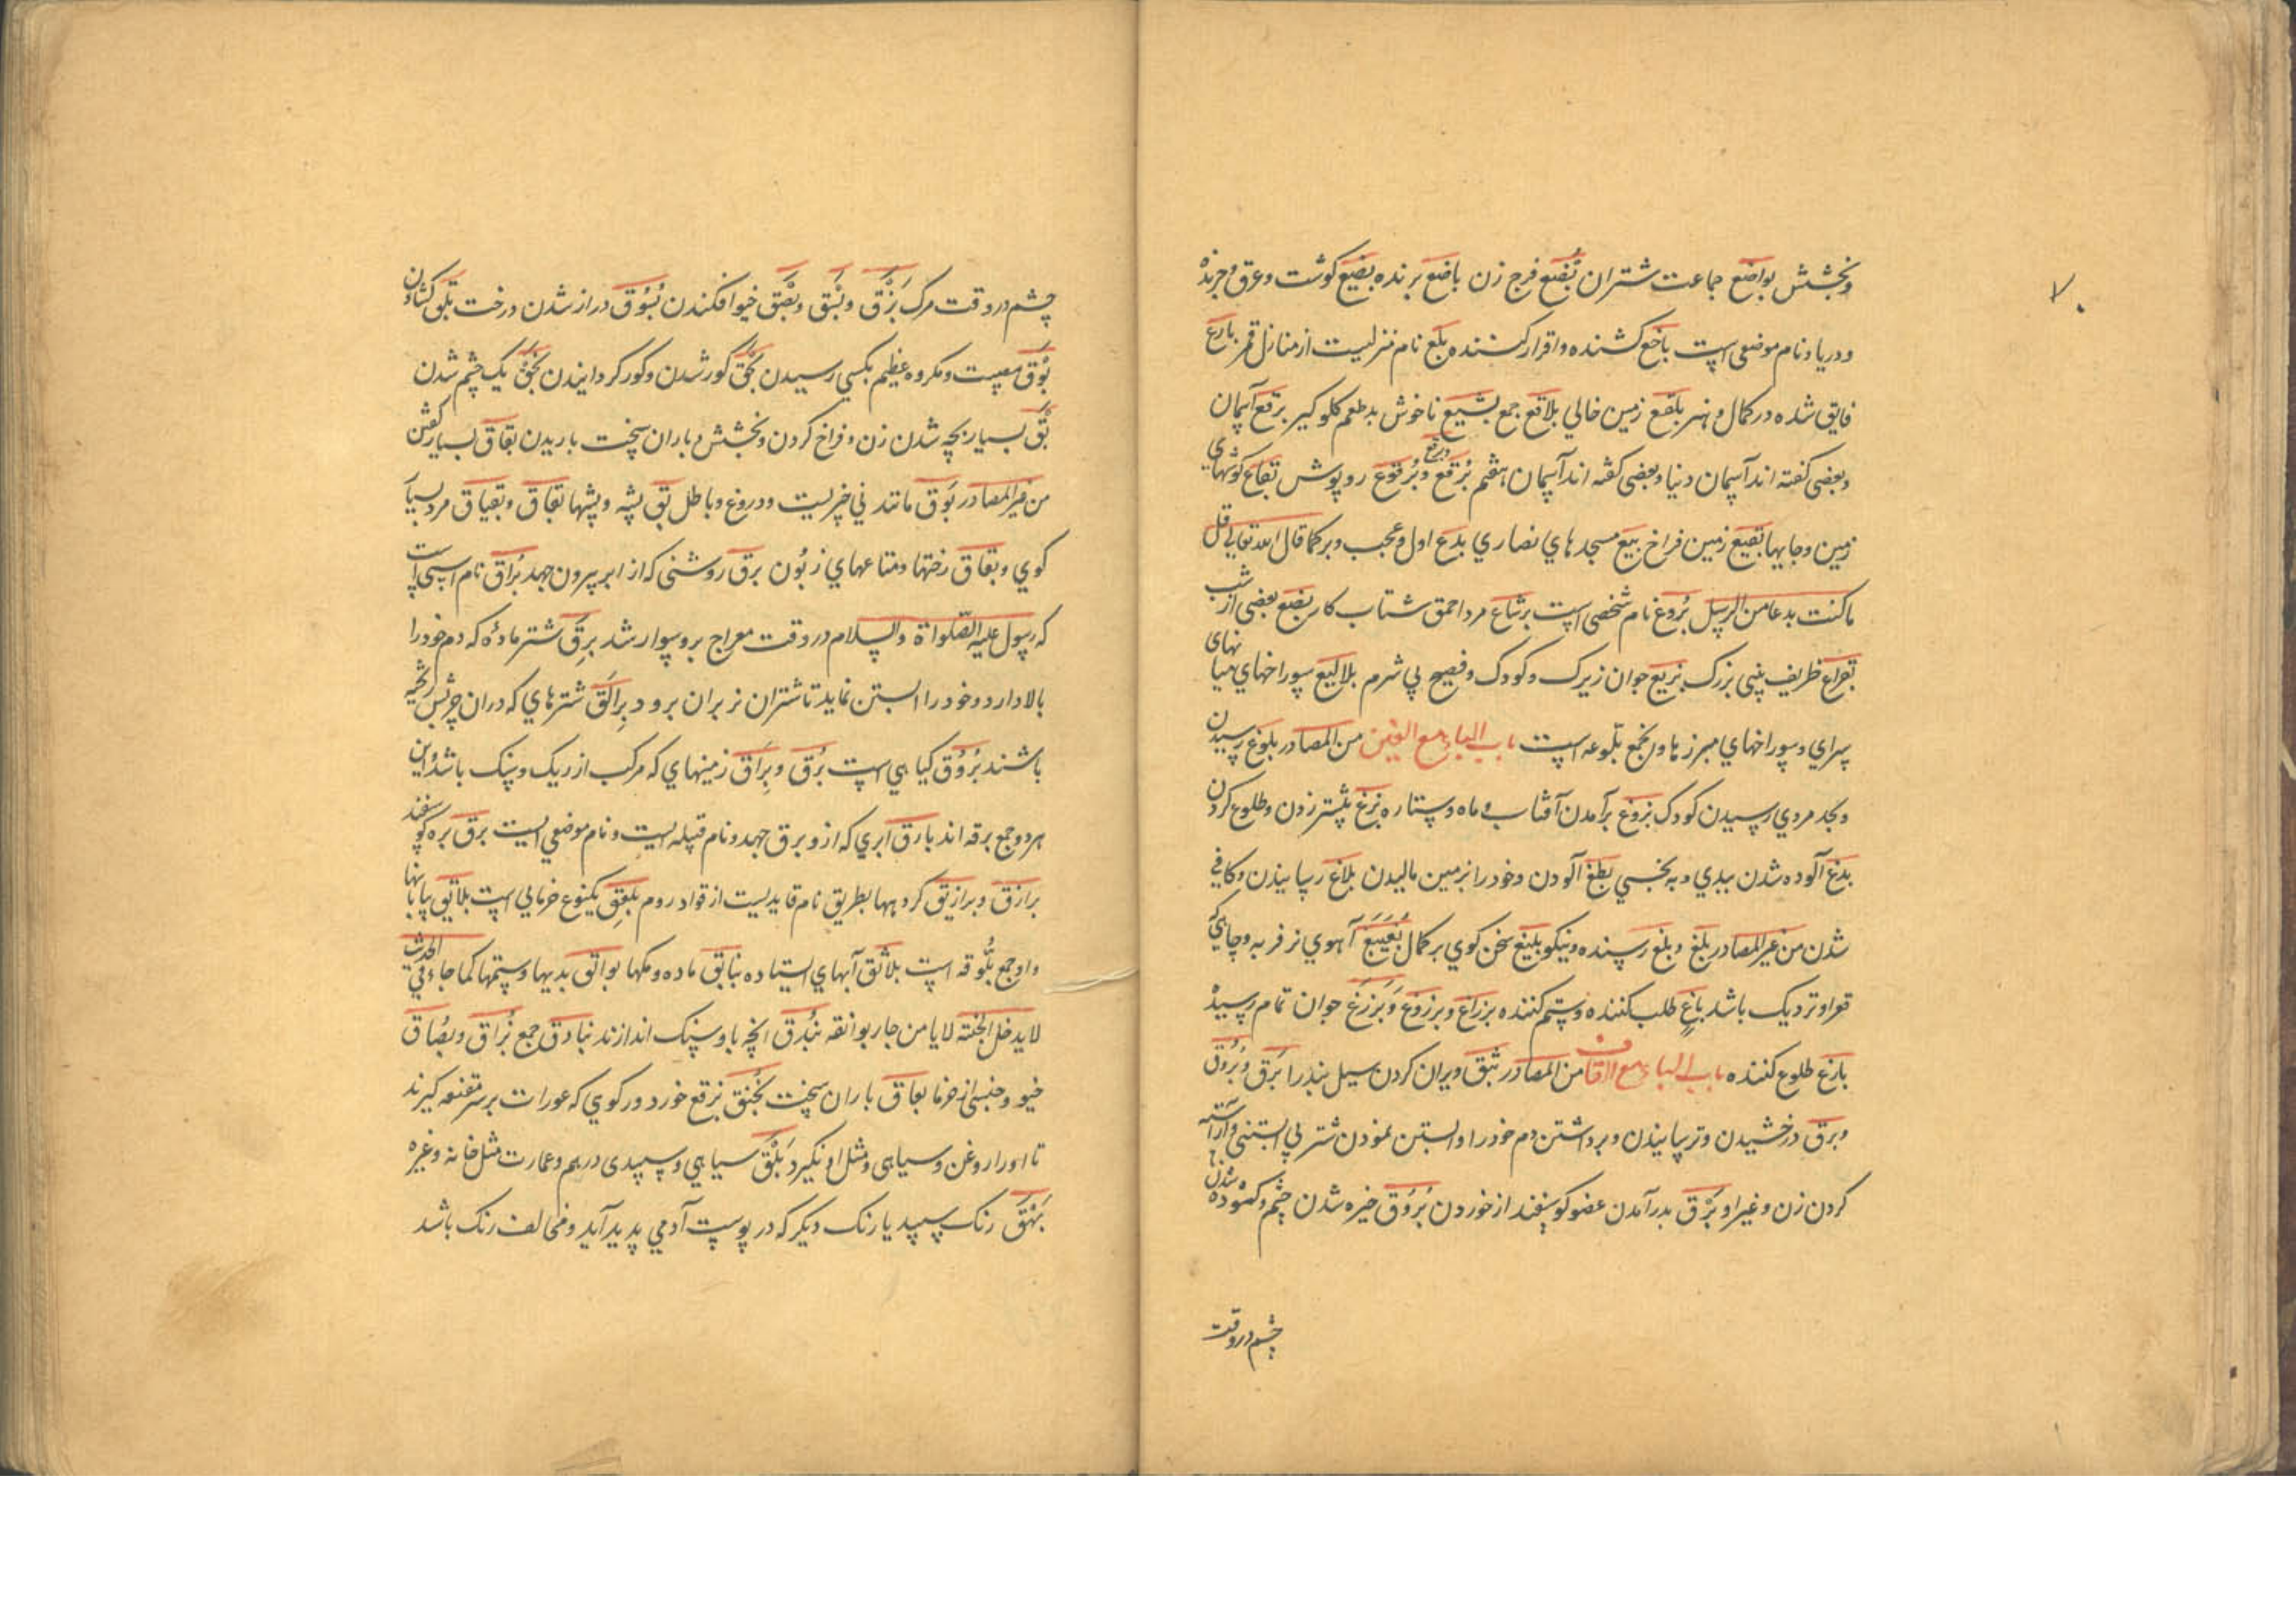 ۷۰
وبخشش بواضع جماعت شتران بُضع فرج زن باضع برنده بضیع کوشت وعرق وجزیرۀ
ودریا ونام موضعی است باخع کشنده واقرار کننده بلع نام منزلیست از منازل قمر بارع
فایق شده در کمال وهنر بلقع زمین خالي بلاقع جمع بشیع ناخوش بدطعم کلوکیر برقع آسمان
وبعضی کفته اند آسمان دنیا وبعضی کفته اند آسمان هفتم بُرقع وبُرقوع روپوش بقاع کوشهای
زمین وجایها بقیع زمین فراخ بیع مسجدهاي نصاري بدع اول وعجب وبر کما قال الله تعالي قل
ماکنت بدعا من الرسل بُروغ نام شخصی است برشاع مرد احمق شتاب کار بضع بعضی از شب
بزیع جوان زیرک وکودک وفصیح بي شرم بلالیع سوراخهاي میانهای
سراي وسوراخهاي مبرزها واین جمع بلّوعه است باب الباء مع الغین من المصادر بلوغ رسیدن
وبحد مردي رسیدن کودک بزوغ برآمدن آفتاب وماه وستاره بزغ نیشتر زدن وطلوع کردن
بدغ آلوده شدن ببدي وبه نجسي بطغ آلودن وخود را بزمین مالیدن بلاغ رسانیدن وکافي
شدن من غیر المصادر بلغ وبلغ رسنده ونیکو بلیغ سخن کوي بر کمال بُغَیبغ آهوي نر فربه وچاهي که
قعر او نزدیک باشد باغ طلب کننده وستم کننده برزاغ وبرزوغ وبَرْزَغ جوان تمام رسیده
بازغ طلوع کننده باب الباء مع القاف من المصادر بثق ویران کردن سیل بند را بَرَق وبُروق
وبرق درخشیدن وترسانیدن وبرداشتن دم خود را وآبستن نمودن شتر بي آبستنی وآراسته
کردن زن وغیر او بَرْق بدر آمدن عضو کوسفند از خوردن بُرْوُق خیره شدن چشم وکشوده شدن
چشم در وقت
چشم در وقت مرک بَزْق وبَسْق وبَصْق خیو افکندن بُسُوق دراز شدن درخت بلق کشادن
بَوْق مصیبت ومکروه عظیم بکسي رسیدن بَخْق کور شدن وکور کردانیدن بَخَق یک چشم شدن
بَقّ بسیار بچه شدن زن وفراخ کردن وبخشش وباران سخت باریدن بقاق بسیار کفتن
من غیر المصادر بوق مانند ني چیزیست ودروغ وباطل بق پشه وپشها بقاق وبقباق مرد بسیار
کوي وبقاق رختها ومتاعهاي زبُون برق روشنی که از ابر بیرون جهد بُراق نام اسبی است
که رسول علیه الصّلواة والسلام در وقت معراج برو سوار شد بَرِق شتر مادۀ که دم خود را
بالا دارد وخود را آبستن نماید تا شتران نر بران نرود بِرالَق شترهاي که دران
باشند بُرْوُق کیاهي است بُرَق وبِرَاق زمینهاي که مرکب از ریک وسنک باشد واین
هر دو جمع برقه اند بارق ابري که ازو برق جهد ونام قبیله ایست ونام موضعي است برق بره کوسفند
برازق وبرازیق کروهها بطریق نام قایدیست از قواد روم بلعق یکنوع خرمایي است بلالیق بیابانها
واو جمع بلّوقه است بلاثق آبهاي استاده بواثق بدیها وستمها کما جاء في الحدیث
لا یدخل الجنّة لا یامن جاره بوائقه بُنْدق آنچه باو سنک اندازند بنادق جمع بُزاق وبُصاق
خیو وجنسی از خرما بعاق باران سخت بُخْنُق برقع خورد ورکوي که عورات بر سر مقنعه کیرند
تا او را روغن وسیاهی ومثل او نکیرد بَلَق سیاهي وسپیدی درهم وعمارت مثل خانه وغیره
بَهَق رنک سپید یا رنک دیکر که در پوست آدمي پدید آید ومخالف رنک باشد